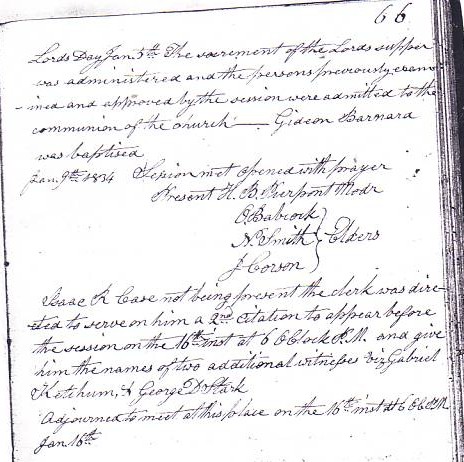 66
Lords Day Jan. 5th The sacrement of the Lords supper
was administered and the persons previously exam-
-ined and approved by the session were admitted to the
communion of the church — Gideon Barnard
was baptised
Jan. 9th 1834 Session met opened with prayer
Present H. B. Pierpont Modr
O. Babcock
N. Smith } Elders
J Corson
Isaac R Case not being present the clerk was dire-
cted to serve on him a 2nd Citation to appear before
the session on the 16th inst at 6 O Clock P.M. and give
him the names of two additional witnesses viz Gabriel
Ketchum, & George D Stark
Adjourned to meet at this place on the 16th inst at 6 O C P.M.
Jan 16th